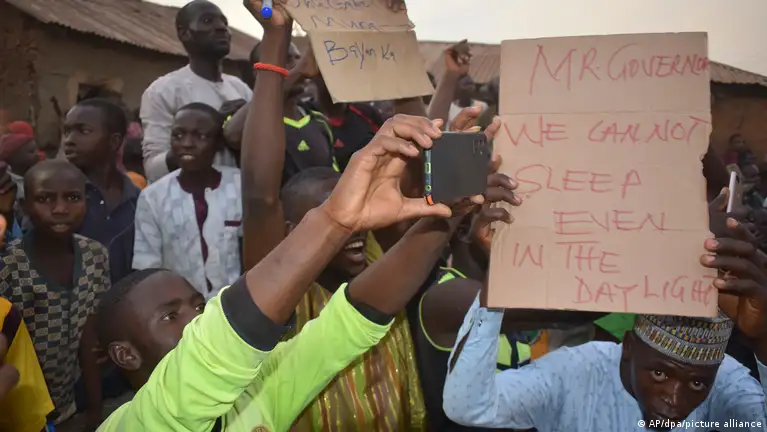 Baƴan Ka
MR. GOVERNOR
WE CAN NOT
SLEEP
EVEN
IN THE
DAYLIGHT
© AP/dpa/picture alliance